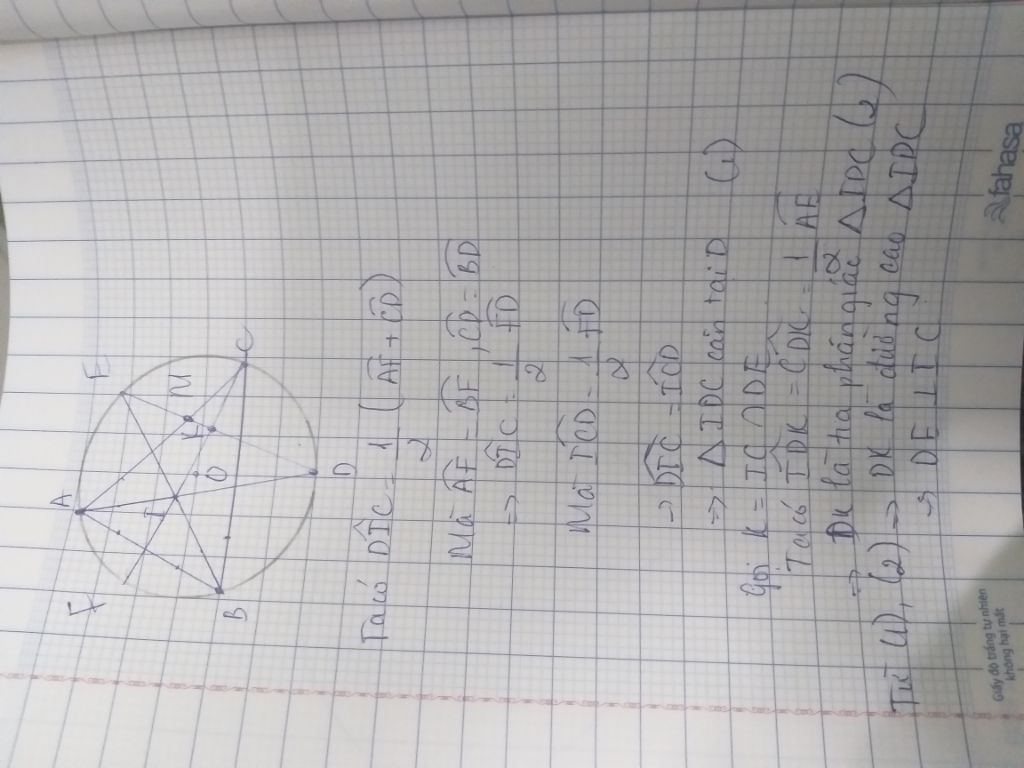 A
F
E
I
K
M
O
B
C
D
Ta có DIC = 1/2 (AF + CD)
Mà AF = BF, CD = BD
=> DIC = 1/2 FD
Mà ICD = 1/2 FD
-> DIC = ICD
=> △ IDC cân tại D (1)
Gọi K = IC ∩ DE
Ta có IDK = CDK = 1/2 AE
=> DK là tia phân giác △ IDC (2)
Từ (1), (2) => DK là đường cao △ IDC
-> DE ⊥ IC
Giấy độ trắng tự nhiên
không hại mắt
fahasa